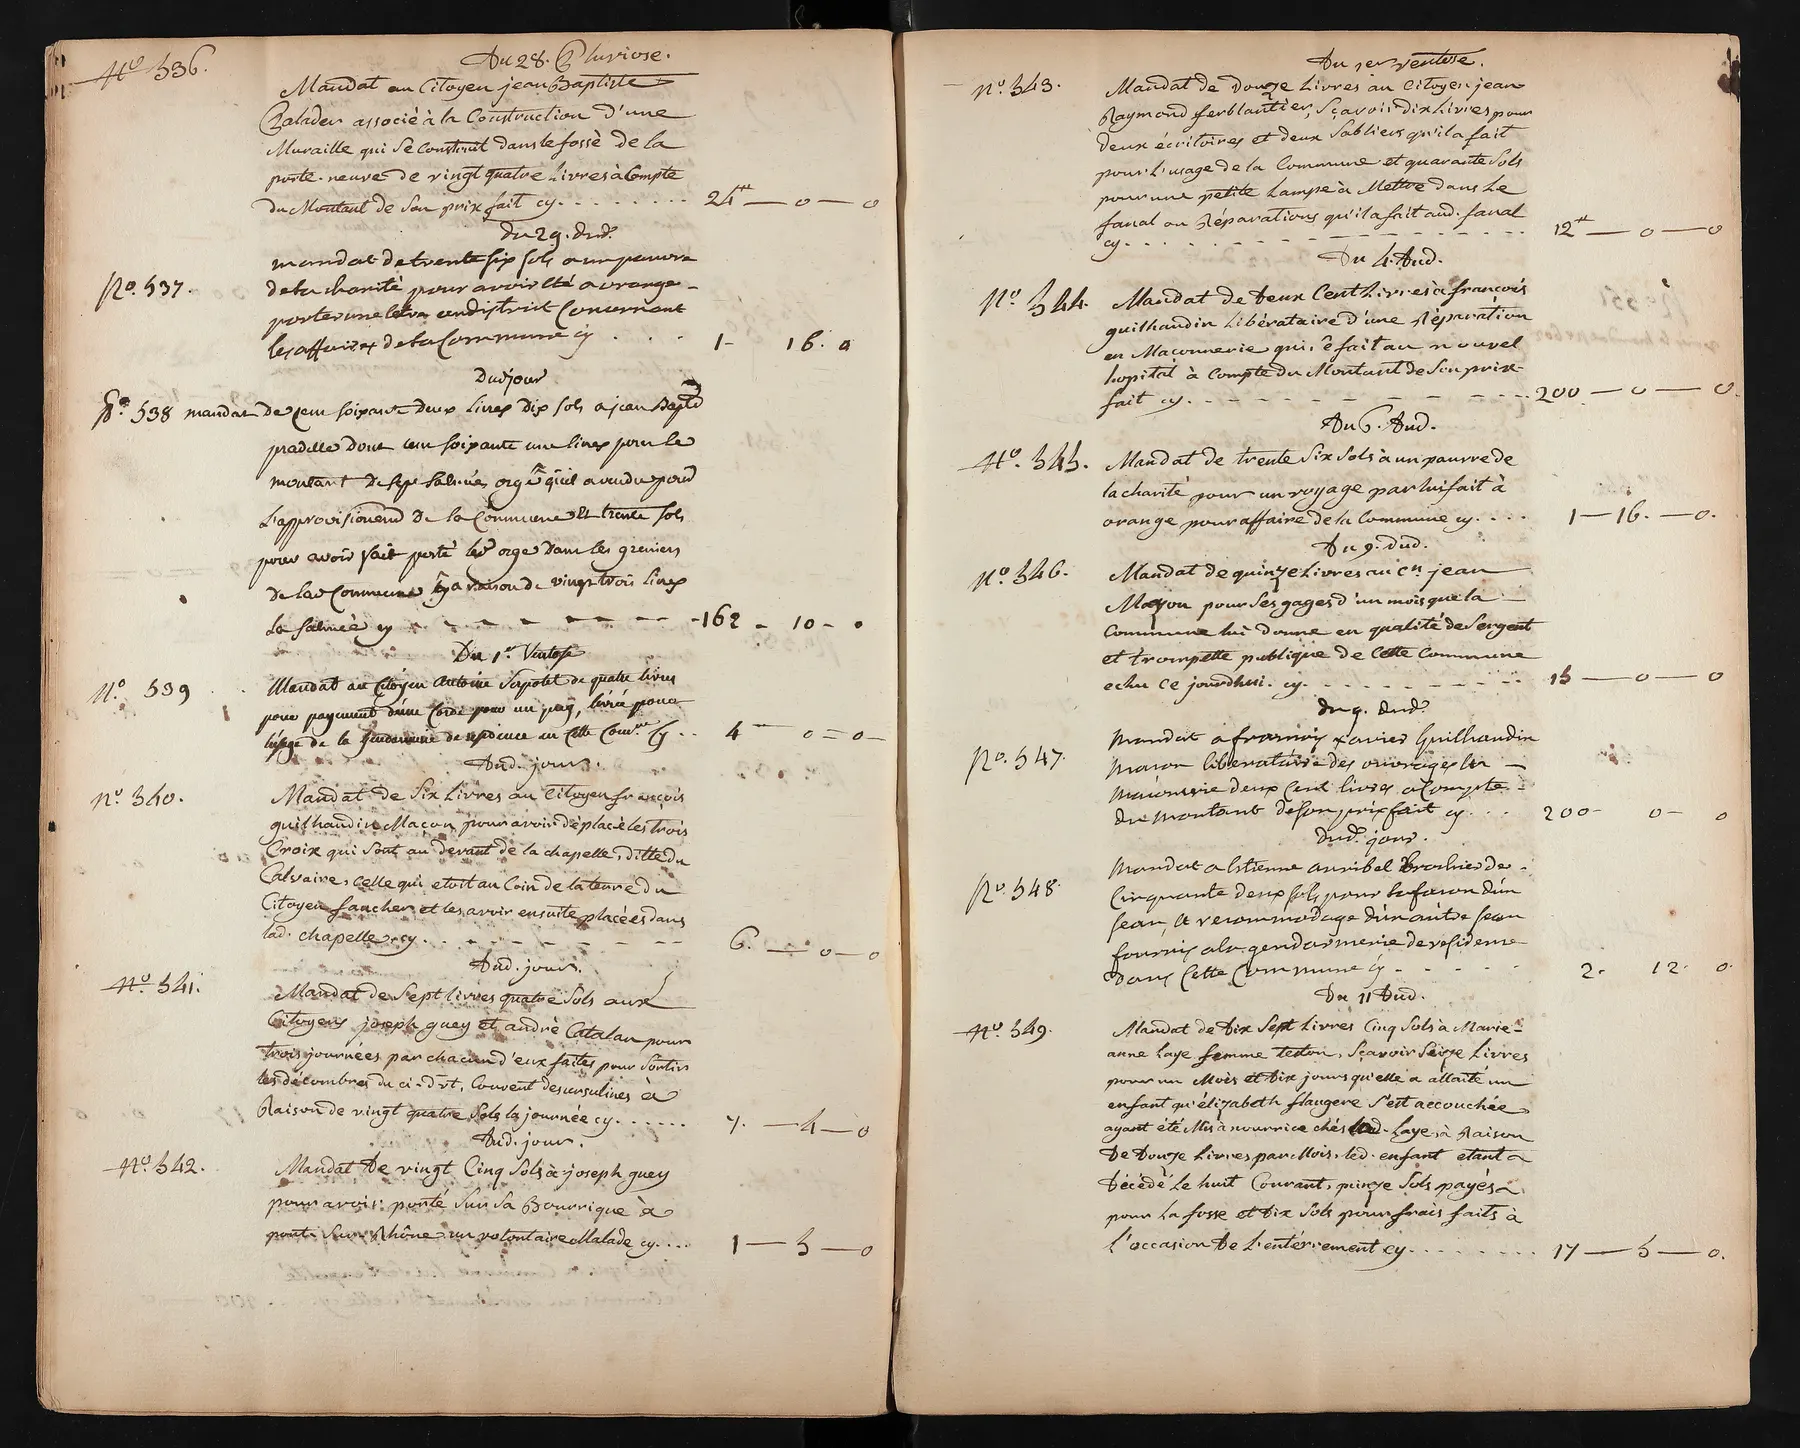 Du 28. Pluviose.
N.º 536.
Mandat au Citoyen jean Baptiste
Balader associé à la Construction d'une
Muraille qui Se Construit dans le fossé de la
porte-neuve de vingt quatre Livres à Compte
du Montant de Son prix fait cy. . . . . . . . 24tt — o — o
Du 29. dud.
mandat de trente six sols a un pauvre
N.º 537. de la charité pour avoir été a orange
porter une letre au district Concernant
les affaires de la Commune cy . . . 1 - 16. o
Dud jour
N.º 538 mandat de cent soixante deux livres dix sols a jean Bapte
pradelle dont cent soixante une livres pour le
montant de sept salmées orge qu'il a vendu pour
L'approvisionend de la Commune et trente sols
pour avoir fait porté led orge dans les greniers
de lad Commune a raison de vingt trois livres
La salmée cy - - - - - - - 162 - 10 - o
Du 1er Ventose
N.º 539 Mandat au Citoyen Antoine Serpolet de quatre livres
pour payement d'une Corde pour un puy, livrée pour
l'usage de la gendarmerie de residence en Cette Comne cy . . 4 — o = o -
Dud. jour.
N.º 540. Mandat de Six Livres au Citoyen françois
guilhaudin Maçon, pour avoir déplacé les trois
Croix qui Sont au devant de la chapelle, ditte du
Calvaire, celle qui etoit au Coin de la terre du
Citoyen faucher et les avoir ensuite placées dans
lad. chapelle cy. - - - - - - - 6. — o — o
Dud. jour.
N.º 541. Mandat de Sept livres quatre Sols aux
Citoyens joseph guey et andré Catalan pour
trois journées par chacun d'eux faites pour Sortir
les décombres du ci-dvt. Couvent des ursulines à
Raison de vingt quatre Sols la journée cy. . . . . . 7. — 4 — o
Dud. jour.
N.º 542. Mandat de vingt Cinq Sols à joseph guey
pour avoir porté Sur Sa Bourrique à
pont Sur Rhône un volontaire Malade cy. . . . 1 — 5 — o
Du 1er ventose.
N.º 543. Mandat de Douze Livres au Citoyen jean
Raymond ferblantier, Sçavoir Dix Livres pour
deux écritoires et deux Sabliers qu'il a fait
pour L'usage de la Commune et quarante Sols
pour une petite Lampe à Mettre dans Le
fanal ou Réparations qu'il a fait aud. fanal
cy. - - - - - - - - - - 12tt — o — o
Du 4. Dud.
N.º 544. Mandat de Deux Cent Livres à françois
guilhaudin Libérataire d'une Réparation
en Maçonnerie qui Se fait au nouvel
hopital à Compte du Montant de Son prix-
fait cy. - - - - - - - - - 200 — o — o.
Du 6. Dud.
N.º 545. Mandat de trente Six Sols à un pauvre de
la charité pour un voyage par lui fait à
orange pour affaire de la Commune cy. . . . 1 — 16. — o.
Du 9. dud.
N.º 546. Mandat de quinze Livres au cn. jean
Mayou pour Ses gages d'un mois que la
Commune lui Donne en qualité de Sergent
et trompette publique de Cette Commune
echu ce jourdhui. cy. - - - - - - 15 — o — o
du 9. dud.
N.º 547. mandat a françois xavier Guilhaudin
macon liberatáire des ouvrages en
maconnerie deux Cent livres a Compte
du montant de Son prix fait cy . . . 200 - o - o
Dud. jour.
N.º 548. mandat a Estienne annibal Brochier de
Cinquante deux sols pour la facon d'un
sean, et recommodage d'un autre sean
fournis a la gendarmerie de residence
dans Cette Commune cy - - - - - 2. 12. o.
Du 11 Dud.
N.º 549. Mandat de Dix Sept Livres Cinq Sols à Marie-
anne Laye femme teston, Sçavoir Seize Livres
pour un Mois et Dix jours qu'elle a allaité un
enfant qu'élizabeth flaugere S'est accouchée
ayant été Mis à nourrice chés lad. Laye à Raison
de Douze Livres par Mois, led. enfant etant
Décédé Le huit Courant, quinze Sols payés
pour La fosse et Dix Sols pour frais faits à
L'occasion de L'enterrement cy. . . . . . . . . 17 — 5 — o.